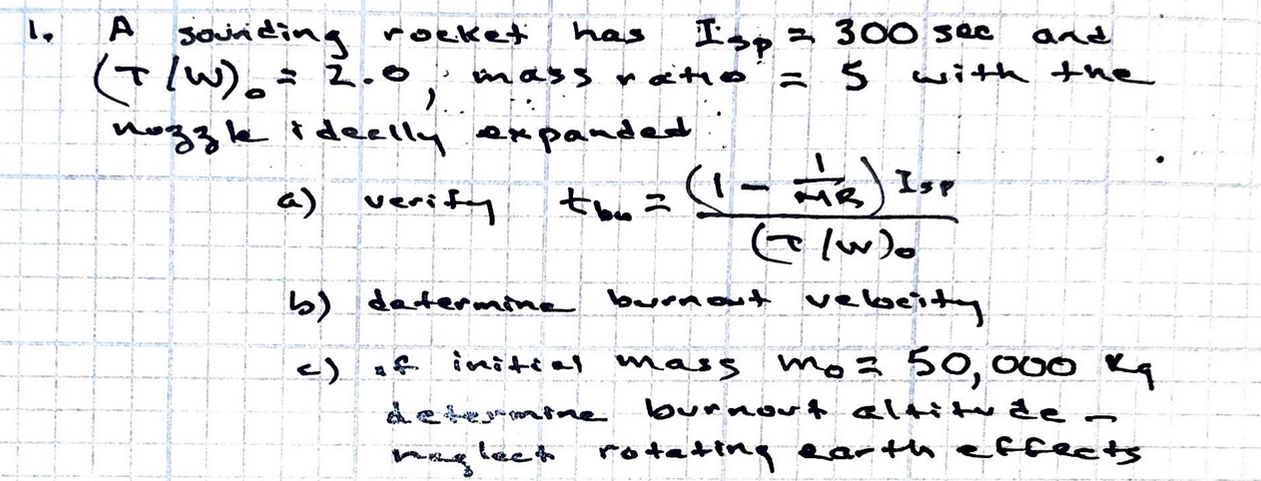 1. A sounding rocket has Isp = 300 sec and
(T/W)₀ = 2.0, mass ratio = 5 with the
nozzle ideally expanded
a) verify tbo = (1 - 1/MR) Isp / (T/W)₀
b) determine burnout velocity
c) if initial mass m₀ = 50,000 Kg
determine burnout altitude -
neglect rotating earth effects